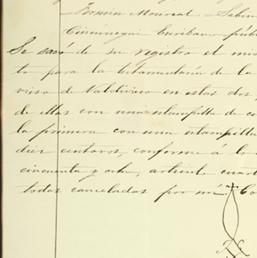 Fermin Monreal = Sabin
Escribano púb
Se sacó de su registro el mis
to para la testamentaria de la
viso de Valdivieso en estas dos
de ellas con una estampilla de c
la primera con una estampilla
diez centavos, conforme á lo
cincuenta y ocho, artículo cuart
todas canceladas por mí